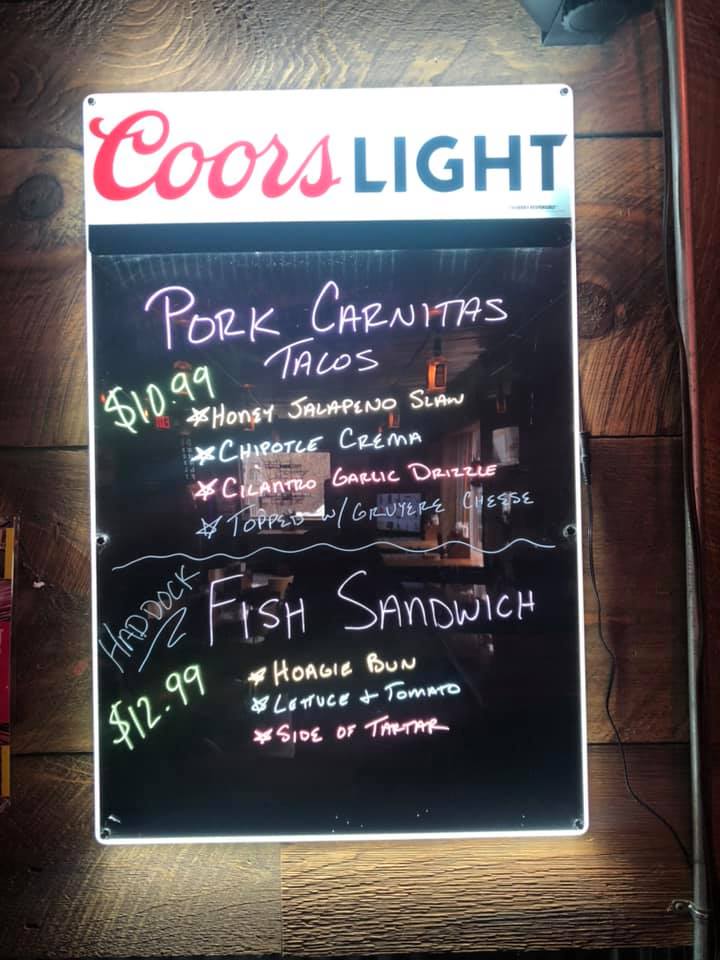 Coors LIGHT
PORK CARNITAS
TACOS
$10.99
HONEY JALAPENO SLAW
CHIPOTLE CREMA
CILANTRO GARLIC DRIZZLE
TOPPED W/ GRUYERE CHEESE
HADDOCK
FISH SANDWICH
$12.99
HOAGIE BUN
LETTUCE + TOMATO
SIDE OF TARTAR